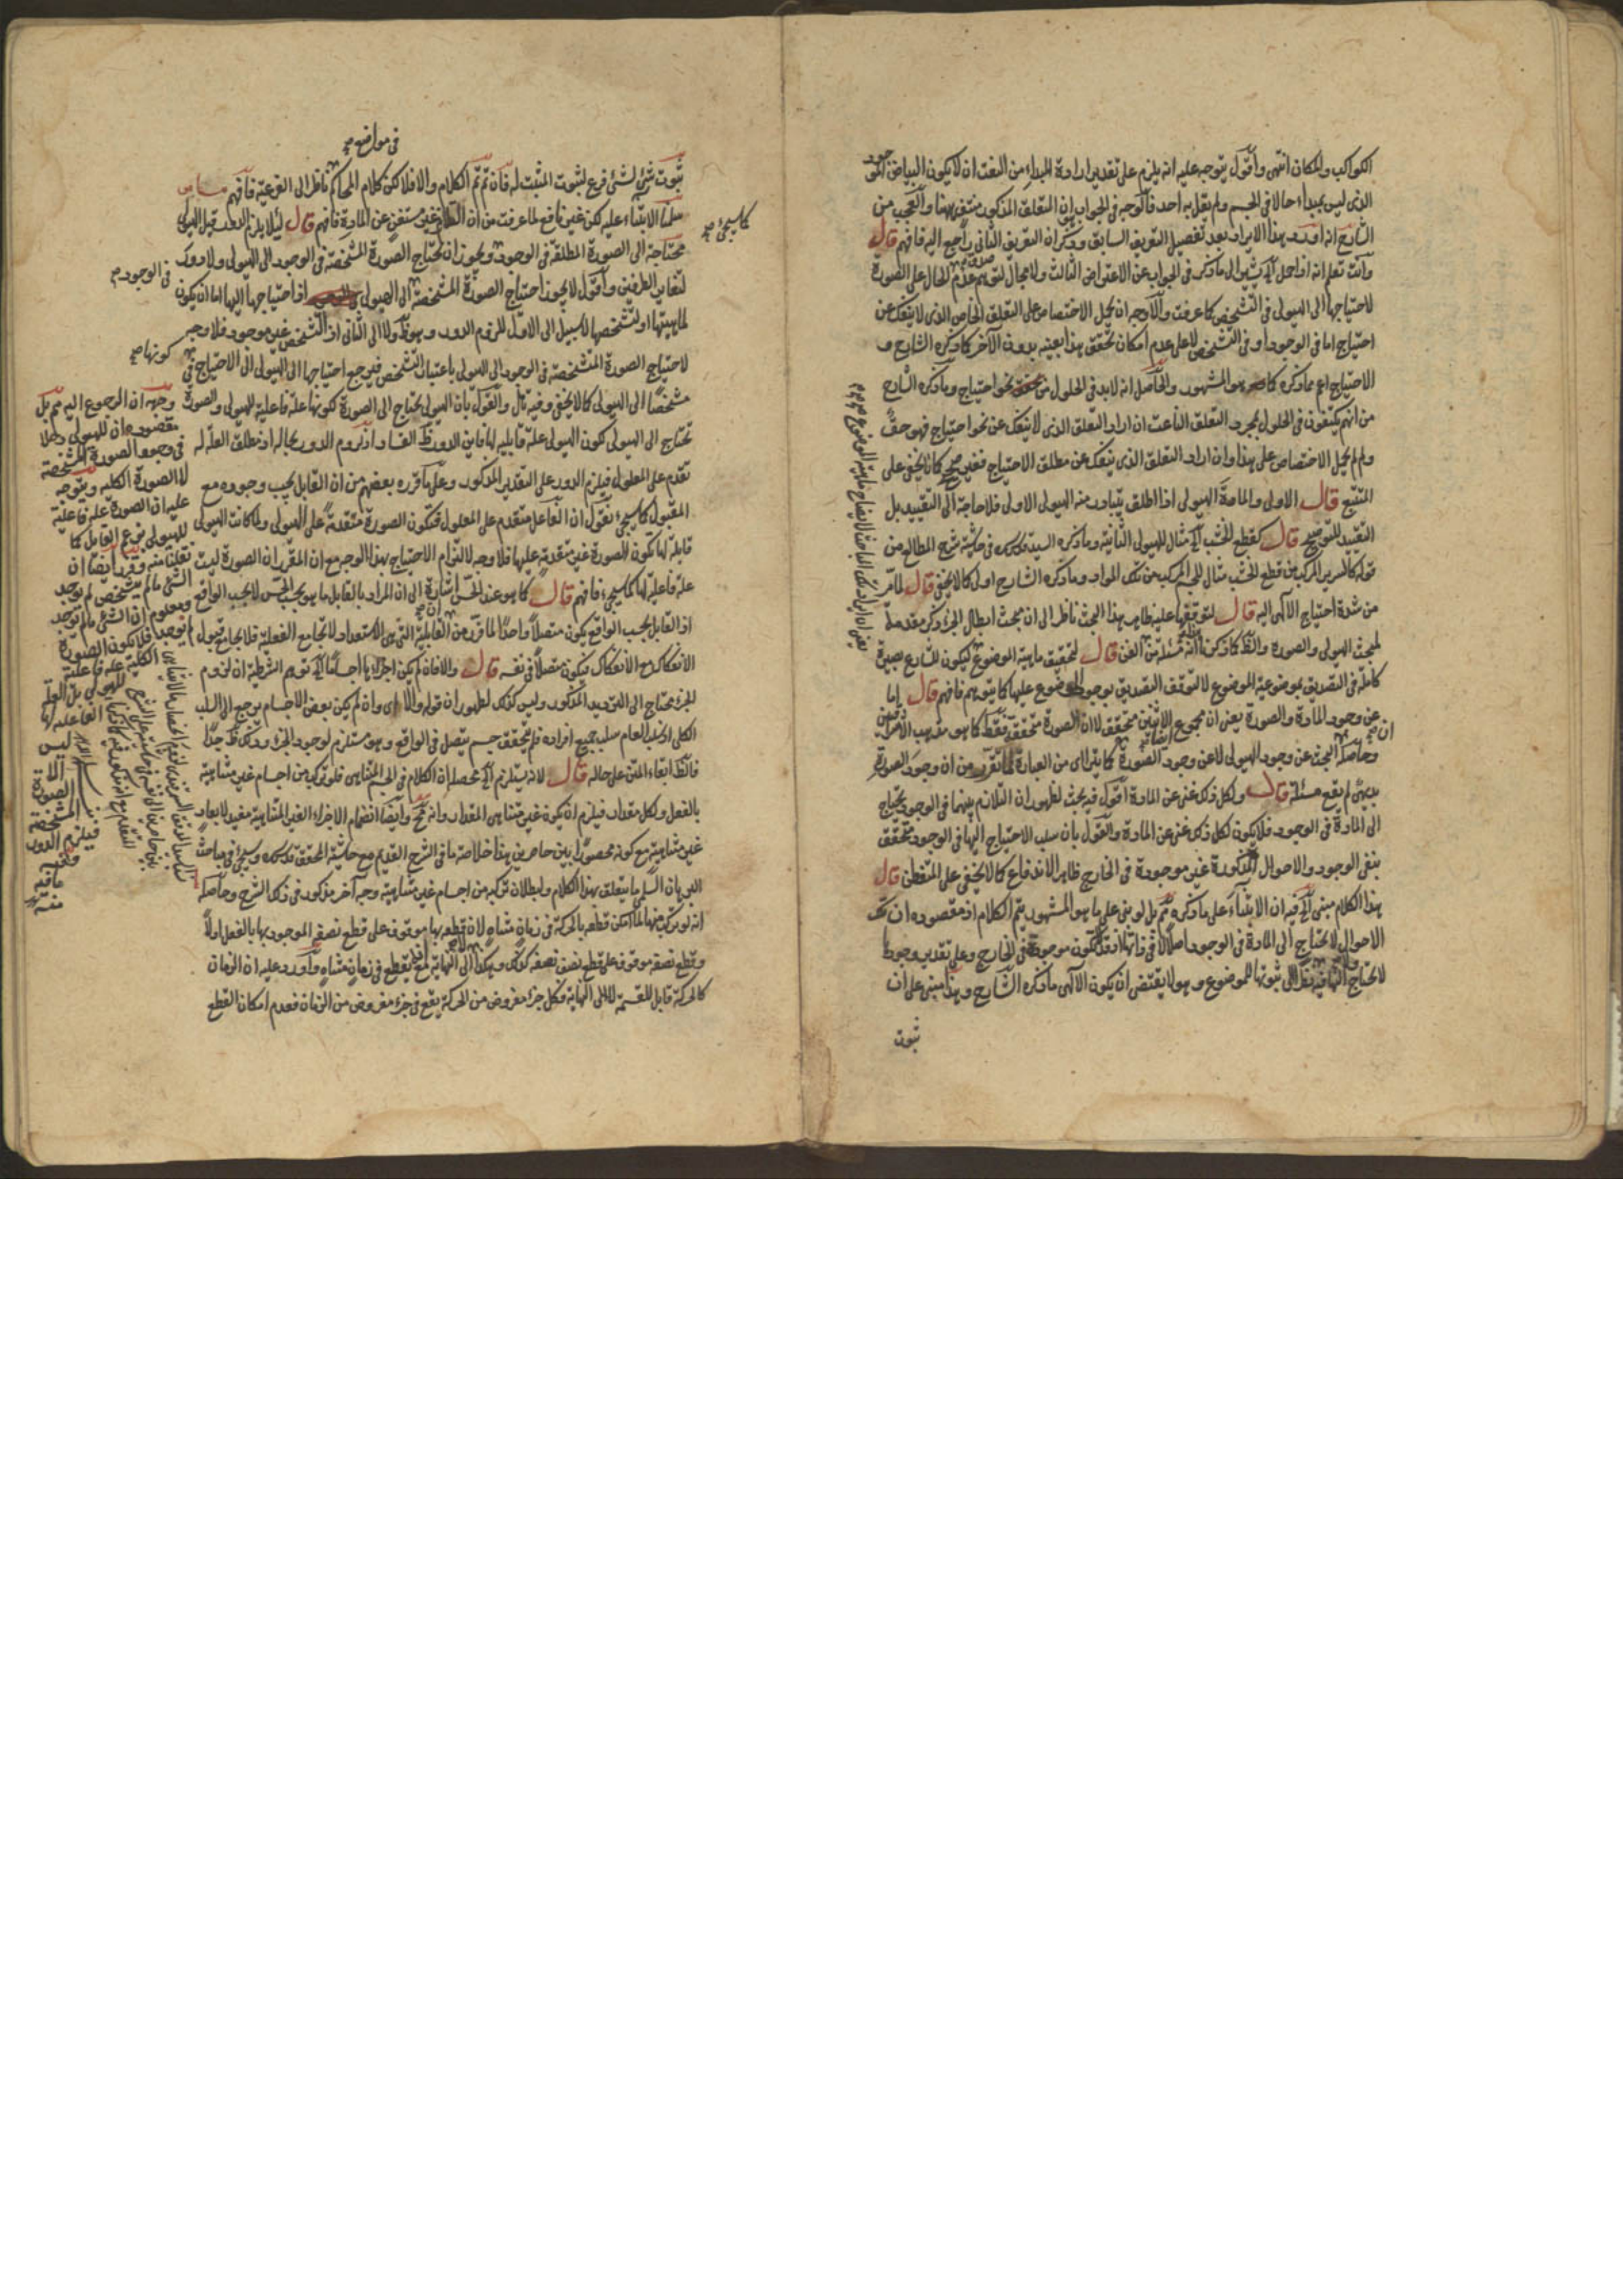 الكواكب والمكان انتهى وأقول يتوجه عليه انه يلزم على تقدير ارادة المبداء من النعت ان لا يكون البياض
الذى ليس بمبداء حالا فى الجسم ولم يقل به احد فالوجه فى الجواب ان التعلق المذكور منتف ههنا والعجب من
الشارح انه اورد هذا الايراد بعد تفصيل التعريف السابق وذكر ان التعريف الثانى راجع اليه فافهم قال
وانت تعلم انه اذا حمل الخ يشير الى ما ذكر فى الجواب عن الاعتراض الثالث ولا مجال لتوهم عدم صدق الحال على الصورة
لاحتياجها الى الهيولى فى التشخص كما عرفت والاوجه ان يحمل الاختصاص على التعلق الخاص الذى لا ينفك عن
احتياج اما فى الوجود او فى التشخص لا على عدم امكان تحقق هذا بعينه بدون الآخر كما ذكره الشارح و
الاحتياج اعم مما ذكره كما هو المشهور والحاصل انه لابد فى الحلول من نحو احتياج وما ذكره الشارح
من انهم يكتفون فى الحلول بمجرد التعلق الناعت ان اراد التعلق الذى لا ينفك عن نحو احتياج فهو حق
ولم لم يحمل الاختصاص على هذا وان اراد التعلق الذى ينفك عن مطلق الاحتياج فغير صحيح كما لا يخفى على
المتتبع قال الاولى والمادة الهيولى اذا اطلق يتبادر منه الهيولى الاولى فلا حاجة الى التقييد بل
التقييد للتوضيح قال كقطع الخشب الخ مثال للهيولى الثانية وما ذكره السيد قدس سره فى حاشية شرح المطالع من
قوله كالسرير المركب من قطع الخشب مثال للجسم المركب من تلك المواد وما ذكره الشارح اولى كما لا يخفى قال لما مر
من شدة احتياج الآلهى اليه قال لتوقفها عليه ظاهر هذا البحث ناظر الى ان بحث ابطال الجزء ذكر مقدمة
لمبحث الهيولى والصورة والظ كما ذكرنا انه مسئلة من الفن قال لتحقيق ماهية الموضوع ليكون للشارع بصيرة
كاملة فى التصديق بموضوعية الموضوع لا لتوقف التصديق بوجود الموضوع عليها كما يتوهم فافهم قال اما
عن وجود المادة والصورة يعنى ان مجموع الاثنين متحقق لا ان الصورة متحققة فقط كما هو مذهب الاشراقيين
وحاصله البحث عن وجود الهيولى لا عن وجود الصورة ايضا كما يترااى من العبارة لما تقرر من ان وجود الصورة
بديهى لم يقع مسئلة قال ولكل ذلك غنى عن المادة اقول فيه بحث لظهور ان التلازم بينهما فى الوجود يحتاج
الى المادة فى الوجود فلا يكون لكل ذلك غنى عن المادة والقول بان سلب الاحتياج اليها فى الوجود متحقق
بنفى الوجود والاحوال المذكورة غير موجودة فى الخارج ظاهر الاندفاع كما لا يخفى على المتفطن قال
هذا الكلام مبنى الخ فيه ان الابتناء على ما ذكره مم بل لو بنى على ما هو المشهور يتم الكلام اذ مقصوده ان تلك
الاحوال لا تحتاج الى المادة فى الوجود اصلا لا فى ذاتها اذ قد لا تكون موجودة فى الخارج وعلى تقدير وجودها
لا تحتاج اليها فيه نظرا الى ثبوتها للموضوع وهو لا يقتضى ان يكون الآلهى ما ذكره الشارح وهذا مبنى على ان
ثبوت
فى مواضع
ثبوت شئ لشئ فرع لثبوت المثبت له فان تم تم الكلام والا فلا لكن كلام المحاكم ناظر الى الفرعية فافهم
سلمنا الابتناء عليه لكن غير نافع لما عرفت من ان الفلك غير مستغن عن المادة فافهم قال لئلا يلزم الدور قيل الهيولى
محتاجة الى الصورة المطلقة فى الوجود ويجوز ان تحتاج الصورة المشخصة فى الوجود الى الهيولى ولا دور
لتغاير الطرفين وأقول لا يجوز احتياج الصورة المشخصة الى الهيولى فى الوجود اذ احتياجها اليها اما ان يكون
لماهيتها او لتشخصها لا سبيل الى الاول للزوم الدور وهو ظ ولا الى الثانى اذ التشخص غير موجود فلا وجه
لاحتياج الصورة المتشخصة فى الوجود الى الهيولى باعتبار التشخص فيرجع احتياجها الى الهيولى الى الاحتياج فى كونها
مشخصا الى الهيولى كما لا يخفى وفيه تأمل والقول بان الهيولى يحتاج الى الصورة لكونها علة فاعلية للهيولى والصورة
تحتاج الى الهيولى لكون الهيولى علة قابلية لها فاين الدور ظ الفساد اذ لزوم الدور بحاله اذ مطلق العلة له
تقدم على المعلول فيلزم الدور على التقدير المذكور وعلى ما قرره بعضهم من ان القابل يجب وجوده مع
المقبول كما سيجئ نقول ان الفاعل متقدم على المعلول فتكون الصورة متقدمة على الهيولى ولما كانت الهيولى
قابلة لها تكون للصورة غير متقدمة عليها فلا وجه لالتزام الاحتياج بهذا الوجه مع ان المقرر ان الصورة ليست
علة فاعلية لها كما سيجئ فافهم قال كما هو عند الحس اشارة الى ان المراد بالقابل ما هو بحسب الحس لا بحسب الواقع
اذ القابل بحسب الواقع يكون متصلا واحدا لما قرر من ان القابلية التى هى الاستعداد لا تجامع الفعلية فلا يجامع قبول
الانفكاك مع الانفكاك فيكون متصلا فى نفسه قال والا فان لم يكن اجزاؤها اجساما الخ توهم الشرطية ان لزوم
الجزء محتاج الى الترديد المذكور وليس كذلك لظهور ان قوله والا اى وان لم يكن بعض الاجسام يرجع الى السلب
الكلى اذ سلب العام سلب جميع افراده فلم يتحقق جسم متصل فى الواقع وهو مستلزم لوجود الجزء وذلك ظ جدا
فالظ ابقاء المتن على حاله قال لانه يستلزم الخ محصله ان الكلام فى الجسم المتناهى فلو تركب من اجسام غير متناهية
بالفعل ولكل مقدار فيلزم ان يكون غير متناهى المقدار وانه مح وايضا انضمام الاجزاء الغير المتناهية مفيد لابعاد
غير متناهية مع كونه محصورا بين حاصرين هذا خلاصة ما فى الشرح القديم مع حاشية المحقق قدس سره وسيجئ فى مباحث
البرهان السلمى ما يتعلق بهذا الكلام ولبطلان تركبه من اجسام غير متناهية وجه آخر مذكور فى ذلك الشرح وحاصله
انه لو تركب منها لما امكن قطعه بالحركة فى زمان متناه لان قطعه بها موقوف على قطع نصفه الموجود بها بالفعل اولا
وقطع نصفه موقوف على قطع نصف نصفه كذلك وهكذا الى النهاية فلم يقطع فى زمان متناه وأورد عليه ان الزمان
كالحركة قابل للقسمة لا الى النهاية وكل جزء مفروض من الحركة يقع فى جزء مفروض من الزمان فعدم امكان القطع
كما سيجئ
وجهه ان المرجوع اليه مم بل
مقصوده ان للهيولى دخلا
فى وجود الصورة المشخصة
لا الصورة الكلية ويتوجه
عليه ان الصورة علة فاعلية
للهيولى بزعم القابل كما
نقلنا منه وقرر ايضا ان
الشئ ما لم يتشخص لم يوجد
ومعلوم ان الشئ ما لم يوجد
لم يوجد فلا يكون الصورة
الكلية علة فاعلية
للهيولى بل العلة
الفاعلية لها
ليس
الا
الصورة
المشخصة
فيلزم الدور
وفيه
ما فيه
منه